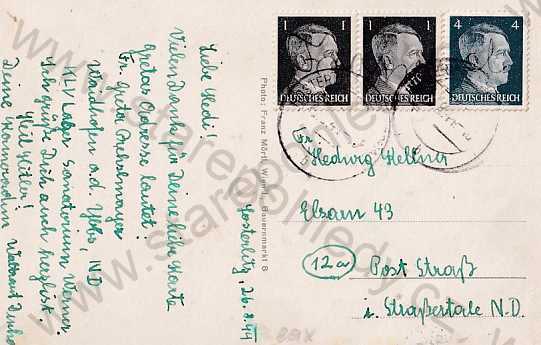 1 1
1 1
4 4
DEUTSCHES REICH
DEUTSCHES REICH
DEUTSCHES REICH
Liebe Hedi!
Vielen Dank für Deine liebe Karte
Gretas Adresse lautet:
Fr. Greta
Waidhofen a.d. Ybbs, N.D.
KLV Lager Sanatorium Werner.
Ich grüße Dich auch herzlichst
Heil Hitler!
Deine Kameradin
26.8.44
Photo: Franz Mörtl, Wien I, Bauernmarkt 8
Fr.
Hedwig Kellner
Elsarn 43
12a
Post Straß
i. Straßertale N.D.
www.starepohledy.cz